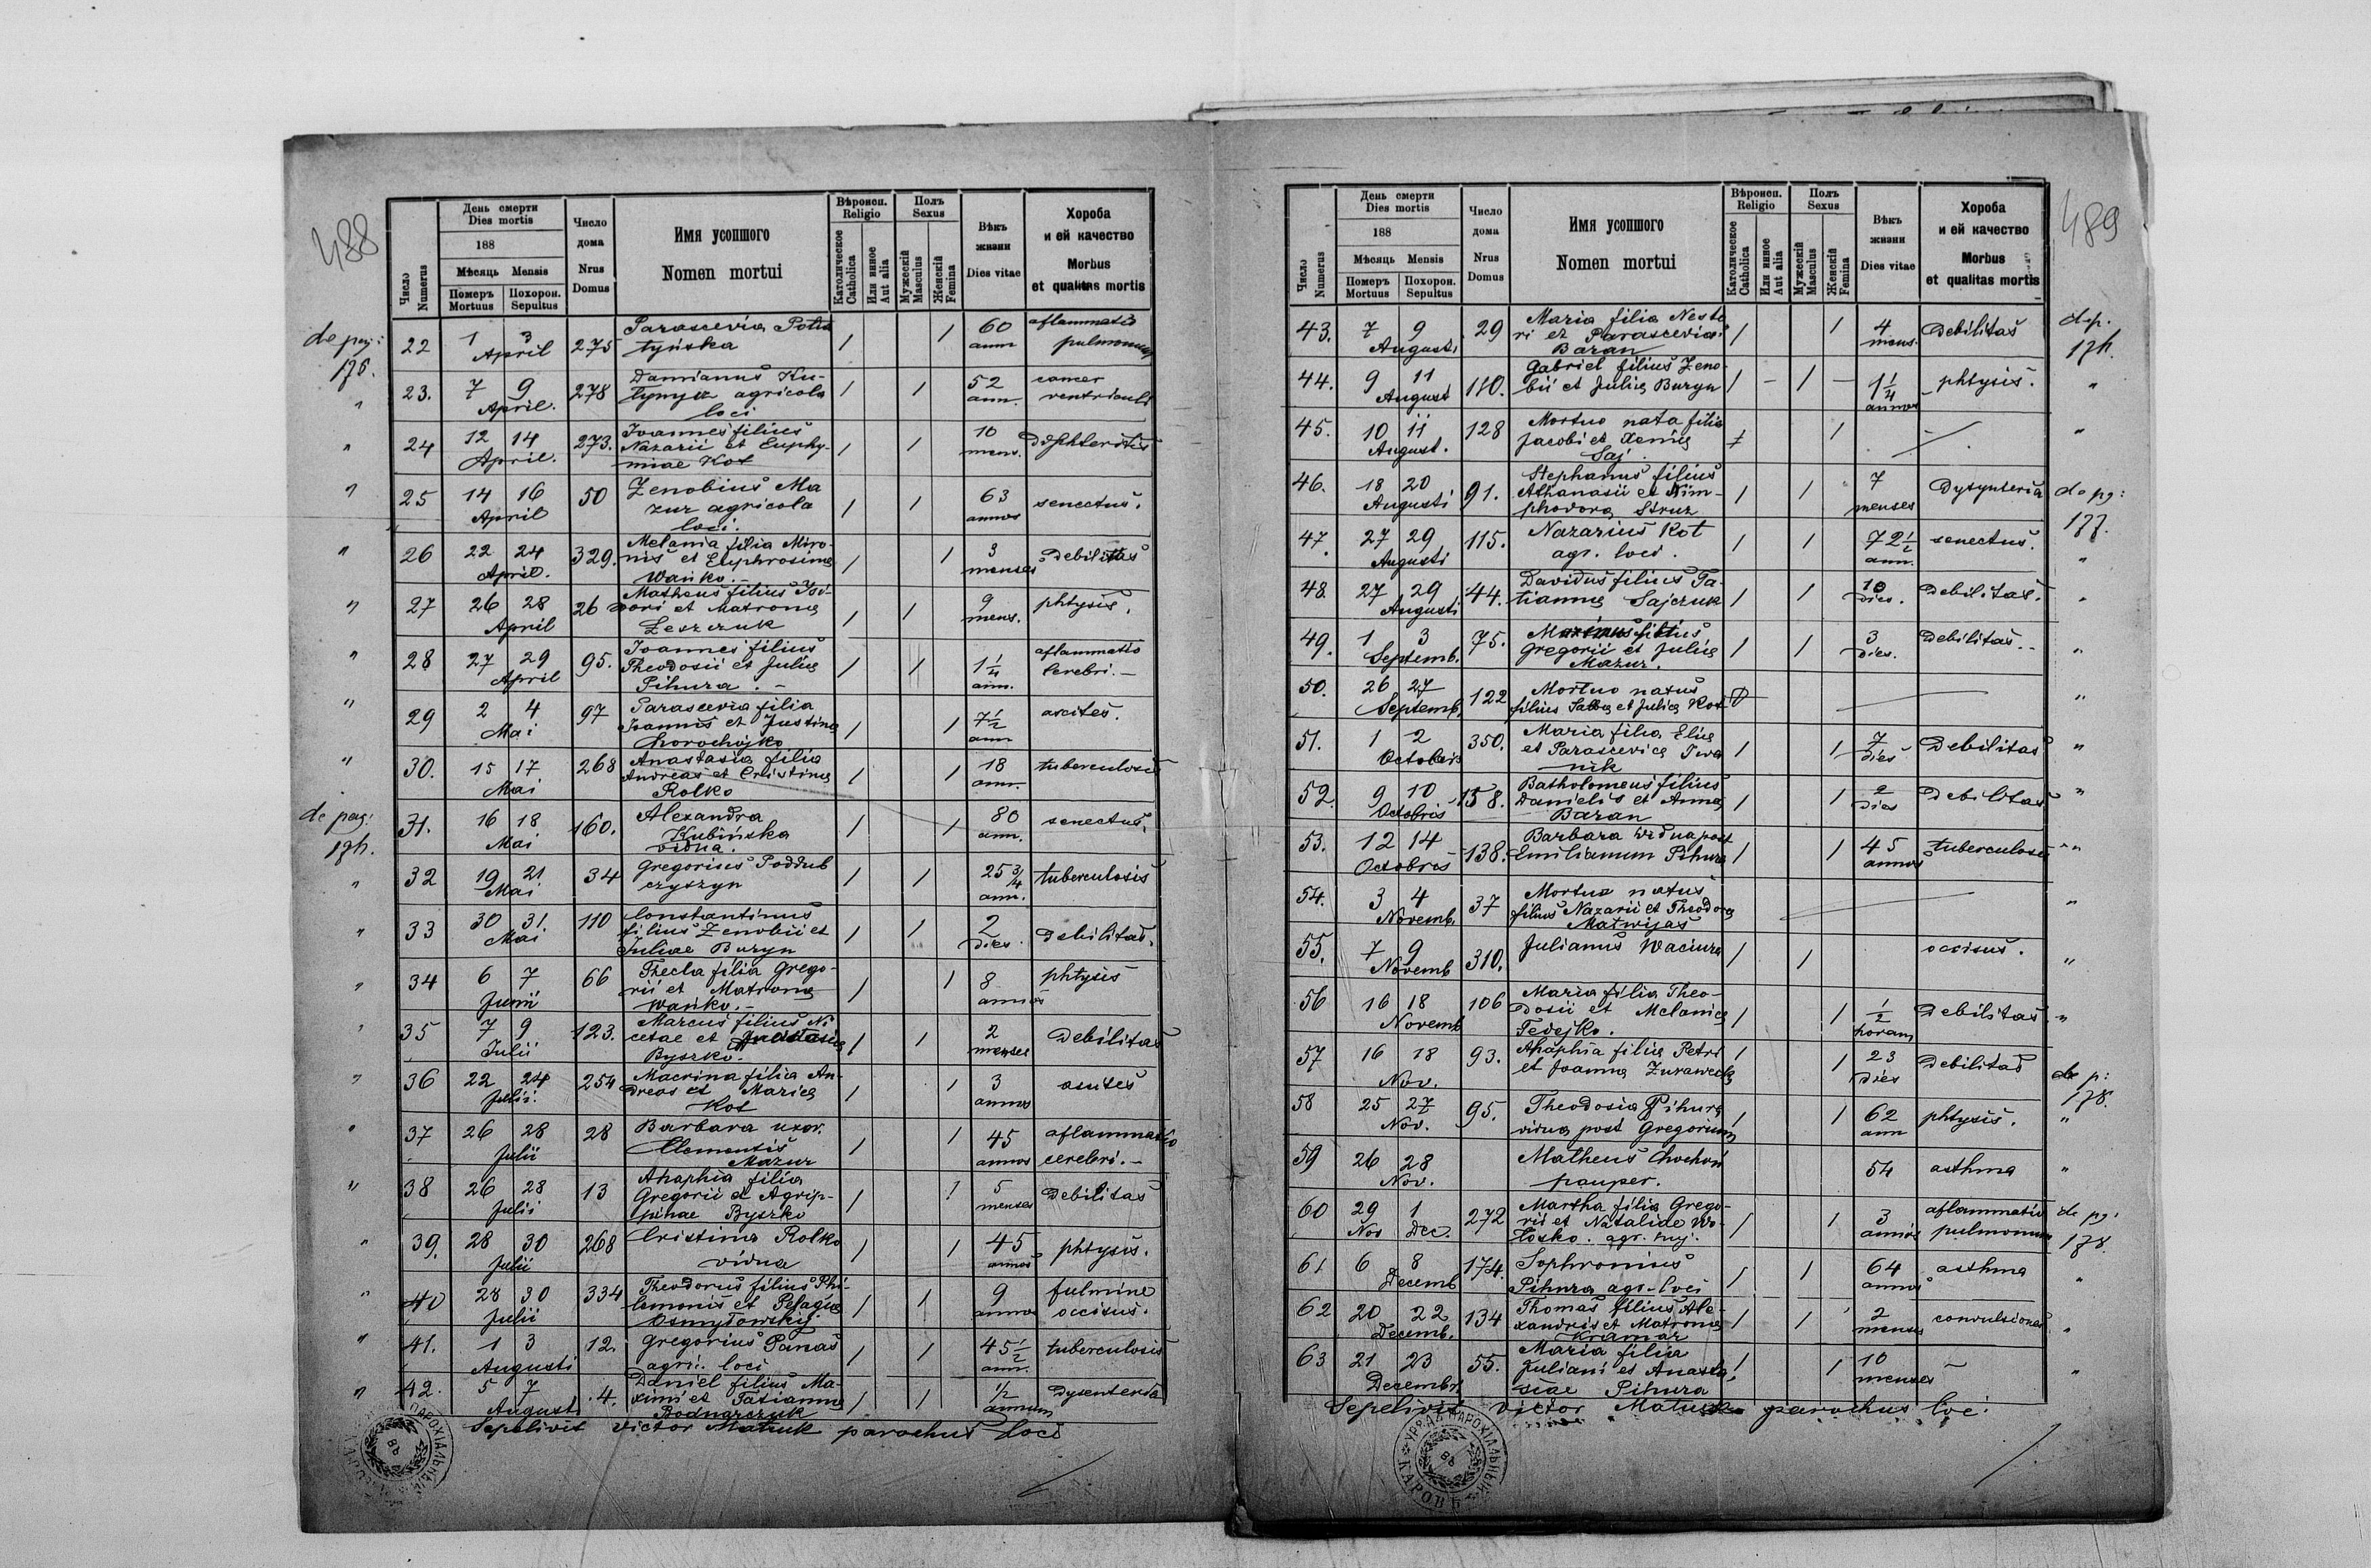 488
Число Numerus
День смерти
Dies mortis
188
Мѣсяць Mensis
Померъ Mortuus
Похорон. Sepultus
Число дома
Nrus Domus
Имя усопшого
Nomen mortui
Вѣроисп. Religio
Католическое Catholica
Или иное Aut alia
Полъ Sexus
Мужескій Masculus
Женскій Femina
Вѣкъ жизни
Dies vitae
Хороба и ей качество
Morbus et qualitas mortis
de pag: 176.
22 1 3 April 275 Parascevia tyńska 1 1 60 ann aflammatio pulmonum
" 23. 7 9 April. 278 Damianus agricola loci 1 1 52 ann. cancer ventriculi
" 24 12 14 April. 273. Joannes filius Nazarii et Euphymiae Kot 1 1 10 mens.
" 25 14 16 April 50 Zenobius Mazur agricola loci. 1 1 63 annos senectus.
" 26 22 24 April. 329. Melania filia Mironis et Euphrosinae Wańko.- 1 1 3 menses debilitas
" 27 26 28 April 26 Matheus filius Isidori et Matronae Leszczuk 1 1 9 mens. phtysis.
" 28 27 29 April 95. Joannes filius Theodosii et Juliae Pihura.- 1 1 1 1/4 ann. aflammatio cerebri.-
" 29 2 4 Mai 97 Parascevia filia Joannis et Justinae 1 1 7 1/2 ann ascites.
" 30. 15 17 Mai 268 Anastasia filia Andreas et Cristinae Rolko 1 1 18 ann. tuberculosis
de pag: 31. 16 18 Mai 160. Alexandra Kubińska vidua. 1 1 80 ann. senectus.
" 32 19 21 Mai 34 Gregorius Poddubczyszyn 1 1 25 3/4 ann. tuberculosis
" 33 30 31. Mai 110 Constantinus filius Zenobii et Juliae Buryn 1 1 2 dies. debilitas.
" 34 6 7 Junii 66 Thecla filia Gregorii et Matronae Wańko.- 1 1 8 annos phtysis
" 35 7 9 Julii 123. Marcus filius Nicetae et Anastasiae Byszko. 1 1 2 menses debilitas
" 36 22 24 Julii. 254 Macrina filia Andreas et Mariae Kot 1 1 3 annos
" 37 26 28 Julii 28 Barbara uxor. Clementis Mazur 1 1 45 annos aflammatio cerebri.-
" 38 26 28 Julii 13 Ahaphia filia Gregorii et Agrippinae Byszko 1 1 5 menses debilitas
" 39. 28 30 Julii 268 Cristina Rolko vidua 1 1 45 annos phtysis.
" 40 28 30 Julii 334 Theodorus filius Philemonis et Pelagiae 1 1 9 annos fulmine occisus.
" 41. 1 3 Augusti 12. Gregorius Panas agri. loci 1 1 45 1/2 ann. tuberculosis
" 42. 5 7 August. 4. Daniel filius Maximi et Tatiannae Bodnarczuk 1 1 1/2 annum dysenteria
Sepelivit Victor Matiuk parochus loci
489
Число Numerus
День смерти
Dies mortis
188
Мѣсяць Mensis
Померъ Mortuus
Похорон. Sepultus
Число дома
Nrus Domus
Имя усопшого
Nomen mortui
Вѣроисп. Religio
Католическое Catholica
Или иное Aut alia
Полъ Sexus
Мужескій Masculus
Женскій Femina
Вѣкъ жизни
Dies vitae
Хороба и ей качество
Morbus et qualitas mortis
43. 7 9 Augusti 29 Maria filia Nestori et Parasceviae Baran 1 1 4 mens. debilitas de p.
44. 9 11 August 110. Gabriel filius Zenobii et Juliae Buryn 1 - 1 - 1 1/4 annos phtysis. "
45. 10 11 August. 128 Mortuo nata filia Jacobi et Xeniae Saj. 1 "
46. 18 20 Augusti 91. Stephanus filius Athanasii et Nimphodorae Struz 1 1 7 menses Dysynteria de pg: 177.
47. 27 29 Augusti 115. Nazarius Kot agr. loci. 1 1 72 1/2 ann. senectus. "
48. 27 29 Augusti 44. Davidus filius Tatiannae Sajczuk 1 1 10 dies. debilitas. "
49. 1 3 Septemb. 75. filius Gregorii et Juliae Mazur. 1 1 3 dies. debilitas.- "
50. 26 27 Septemb. 122 Mortuo natus filius Sabbae et Juliae Kot "
51. 1 2 Octobris 350. Maria filia Eliae et Parasceviae Iwanik 1 1 7 dies debilitas "
52. 9 10 Octobris 158. Batholomeus filius Danielis et Annae Baran 1 1 2 dies debilitas "
53. 12 14 Octobris 138. Barbara vidua post Emilianum Pihura 1 1 45 annos tuberculosis "
54. 3 4 Novemb. 37 Mortuo natus filius Nazarii et Theodorae Matwijas "
55. 7 9 Novemb 310. Julianus Waciura 1 1 occisus. "
56 16 18 Novemb 106 Maria filia Theodosii et Melaniae Fedejko. 1 1 1/2 horam debilitas "
57 16 18 Nov. 93. Ahaphia filia Petri et Joannae 1 1 23 dies debilitas de p: 178.
58 25 27 Nov. 95. Theodosia Pihura vidua post Gregorium 1 1 62 ann phtysis. "
59 26 28 Nov. Matheus pauper. 54 asthma "
60 29 1 Nov Dec. 272 Martha filia Gregorii et Natalide Wołosko. agr. 1 1 3 annos aflammatio pulmonum de pg: 178.
61 6 8 Decemb 174. Sophronius Pihura agr. loci 1 1 64 annos asthma "
62 20 22 Decemb. 134 Thomas filius Alexandris et Matronae Kramar 1 1 2 menses convulsiones "
63 21 23 Decembr. 55. Maria filia Juliani et Anastasiae Pihura 1 1 10 menses "
Sepelivit Victor Matiuk parochus loci
УРЯДЪ ПАРОХІАЛЬНЫЙ КАРОВЪ